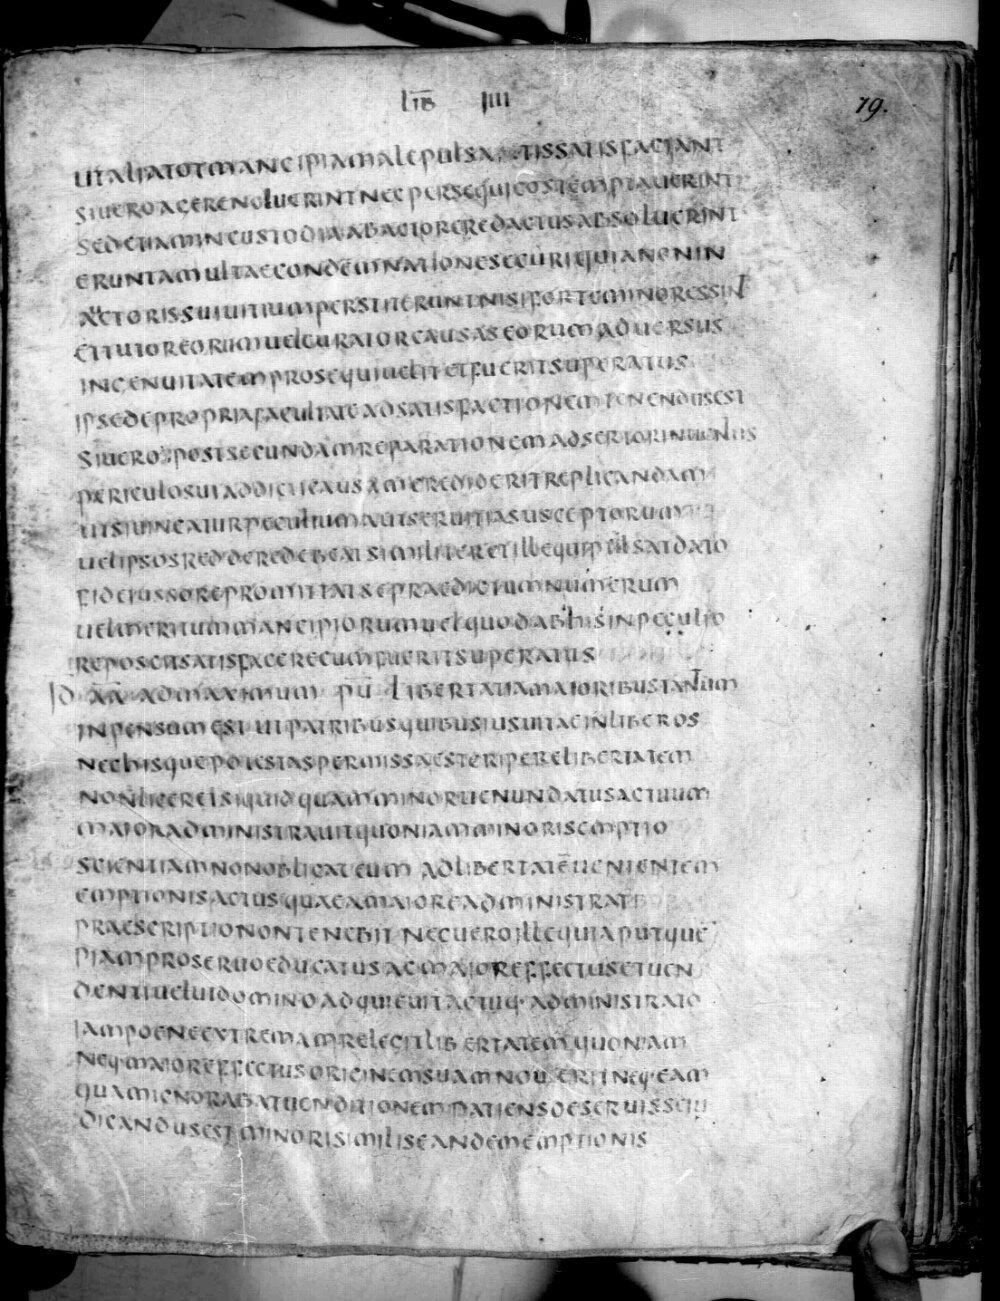 LIB IIII
19.
UTALIATOTMANCIPIAMALEPULSATISSATISFACIANT
SIUEROAGERENOLUERINTNECPERSEQUICOSTEMPTAUERINT
SEDETIAMINCUSTODIAABACTOREREDACTUSABSOLUERINT
ERUNTAMULTAECONDEMNATIONESECURIQUIANENIN
ACTORISSUIUITIUMPERSTITERUNTNISIFORTEMINORESSINT
ETTUTOREORUMUELCURATORCAUSASEORUMADUERSUS
INGENUITATEMPROSEQUIUELITETFUERITSUPERATUS
IPSEDEPROPRIAFACULTATEADSATISFACTIONEMTENENDUSEST
SIUEROPOSTSECUNDAMREPARATIONEMADSERTORINUENTUS
PERICULOSUIADDICTICAUSAMCREDIDERITREPLICANDAM
UTSIUINCATURPECULIUMAUTSERUITIASUSCEPTORUM
UELIPSOSREDDEREDEBEATSIMILITERETILLEQUIPULSATDATO
FIDEIUSSOREPROMITTATSEPRAEDICTUMNUMERUM
UELMERITUMMANCIPIORUMUELQUODABHISINPECULIO
REPOSCITSATISFACERECUMFUERITSUPERATUS
ID AA ADMAXIMUM PU LIBERTATIAMAIORIBUSTANTUM
INPENSUMESTUTPATRIBUSQUIBUSIUSUITAEINLIBEROS
NECISQUEPOTESTASPERMISSAESTERIPERELIBERTATEM
NONLICERETSIQUIDQUAMMINORUENUNDATUSACTUUM
MAIORADMINISTRAUITQUONIAMMINORISEMPTIO
SCIENTIAMNONOBLIGATEUM ADLIBERTATEUENIENTEM
EMPTIONISACTUSQUAEAMAIOREADMINISTRATI
PRAESCRIPTIONONTENEBIT NECUEROILLEQUIAPUTQUE
PIAMPROSERUOEDUCATUSACMAIOREFFECTUSETUEN
DENTIUELUIDOMINOADQUIEUITACTUQ· ADMINISTRATO
IAMPOENEEXTREMAMRELEGITLIBERTATEMQUONIAM
NEQ·MAIOREFFECTUSORIGINEMSUAMNOUERITNEQ·EAM
QUAMIGNORABATUENDITIONEMPATIENSDESERUISSEIU
DICANDUSESTMINORISIMILISEANDEMEMPTIONIS